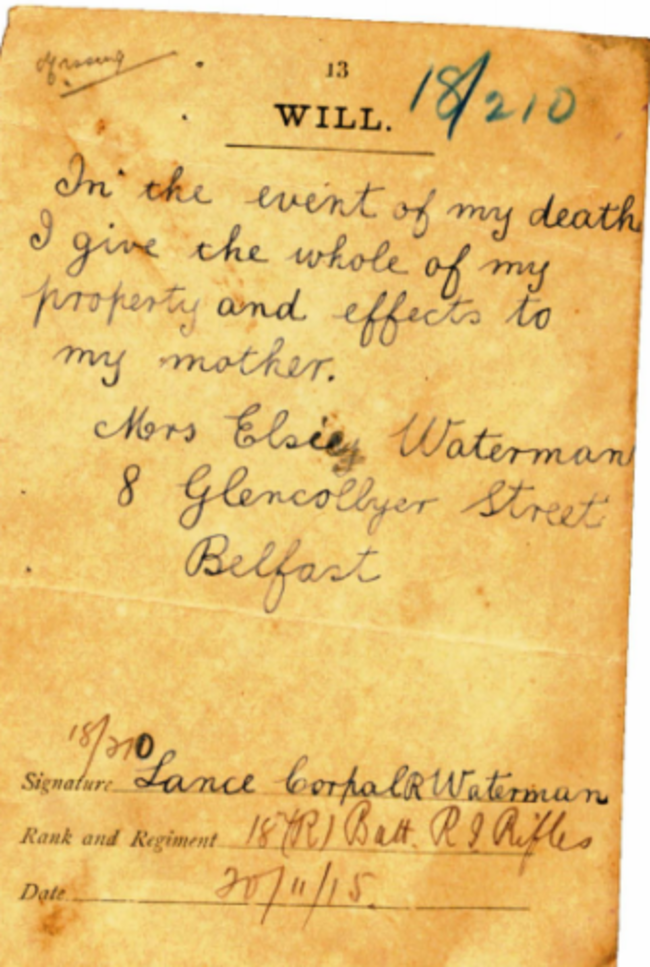 13
18/210
WILL.
In the event of my death
I give the whole of my
property and effects to
my mother.
Mrs Elsie Waterman
8 Glencollyer Street
Belfast
18/210
Signature Lance Corpal R Waterman
Rank and Regiment 18 (R) Batt. R I Rifles
Date 20/11/15.